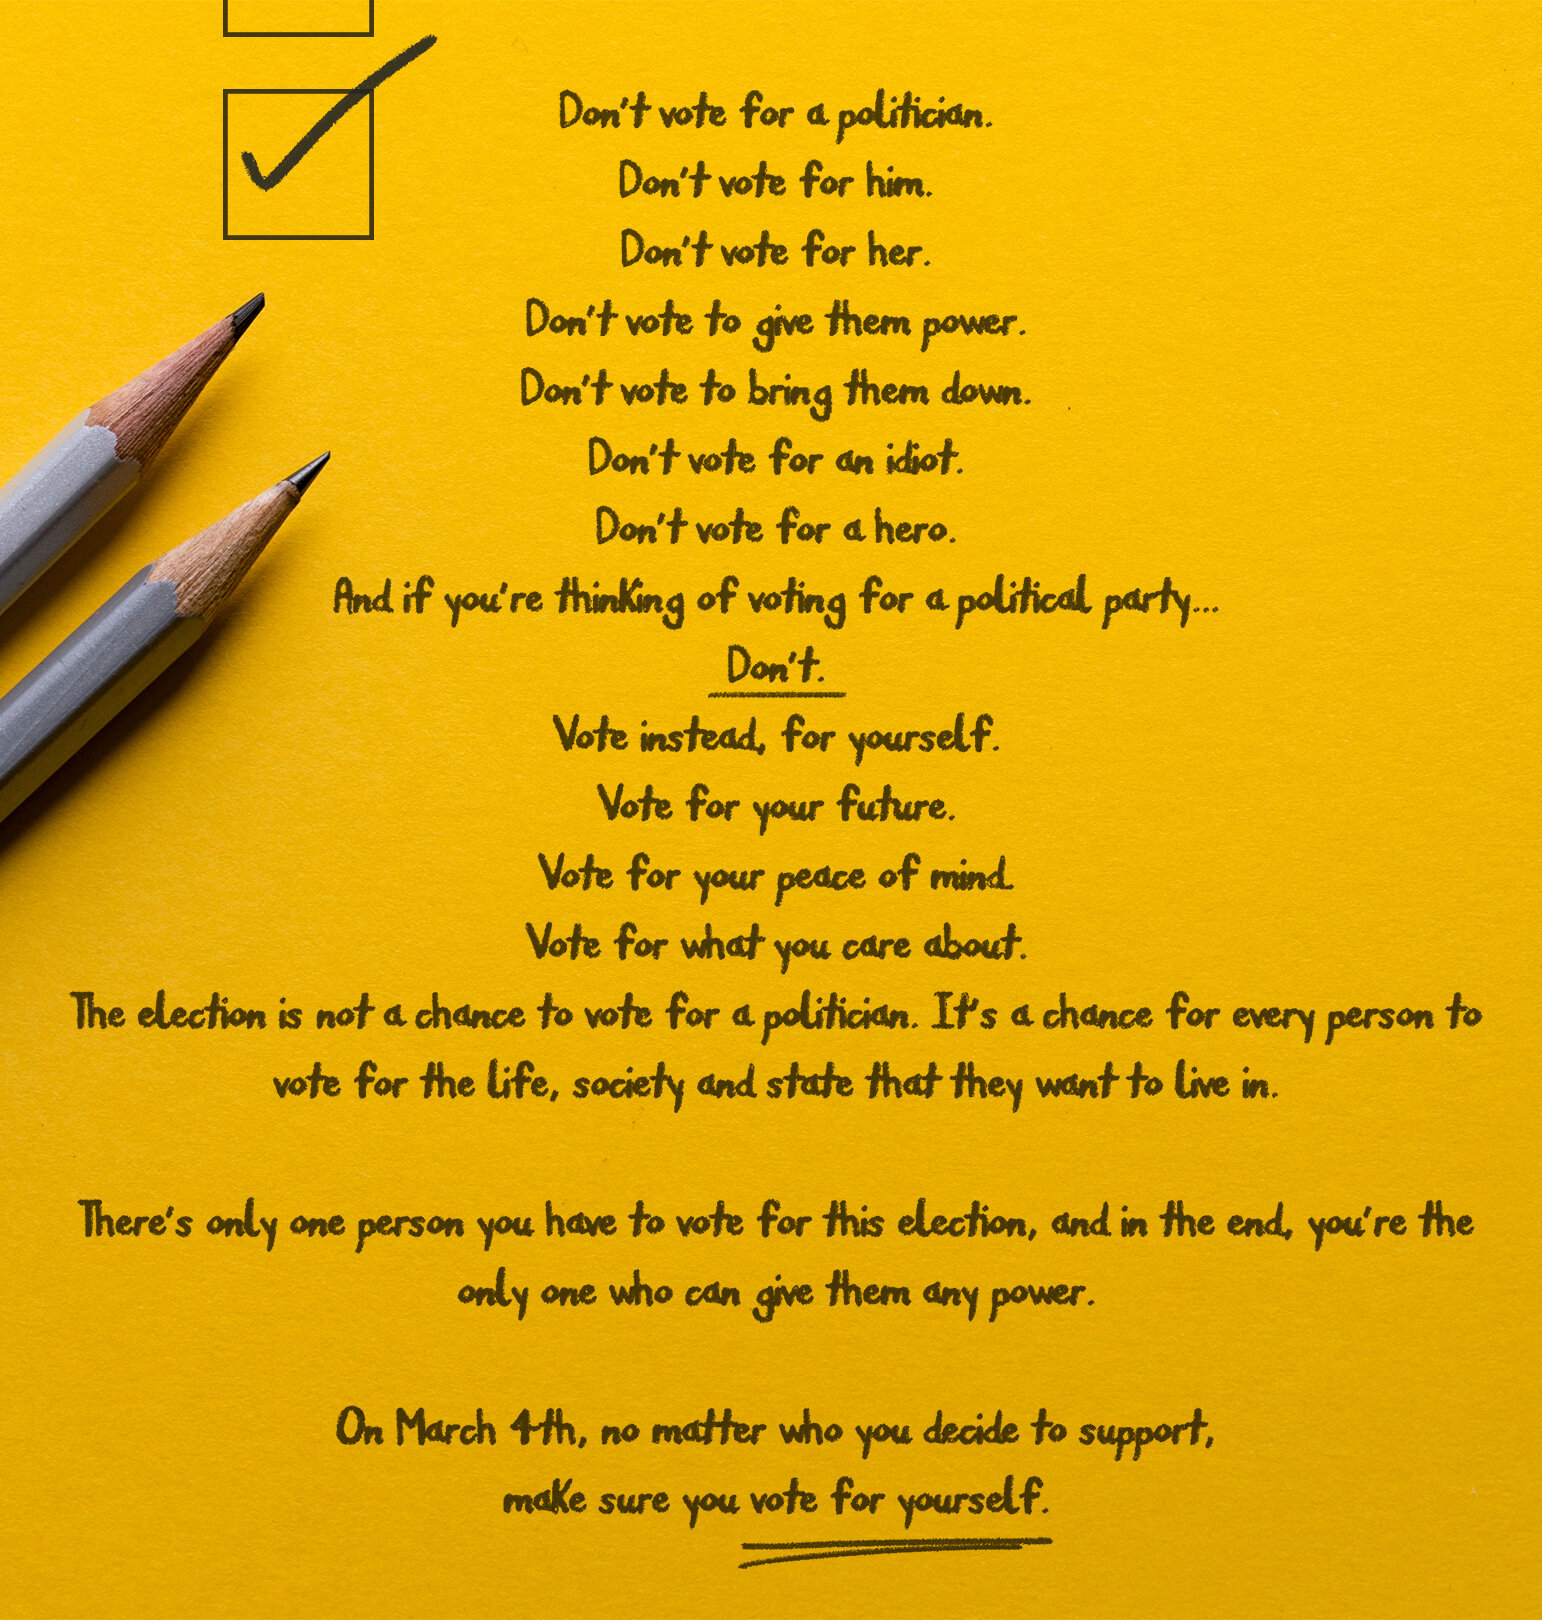 Don't vote for a politician.
Don't vote for him.
Don't vote for her.
Don't vote to give them power.
Don't vote to bring them down.
Don't vote for an idiot.
Don't vote for a hero.
And if you're thinking of voting for a political party...
Don't.
Vote instead, for yourself.
Vote for your future.
Vote for your peace of mind.
Vote for what you care about.
The election is not a chance to vote for a politician. It's a chance for every person to
vote for the life, society and state that they want to live in.
There's only one person you have to vote for this election, and in the end, you're the
only one who can give them any power.
On March 4th, no matter who you decide to support,
make sure you vote for yourself.